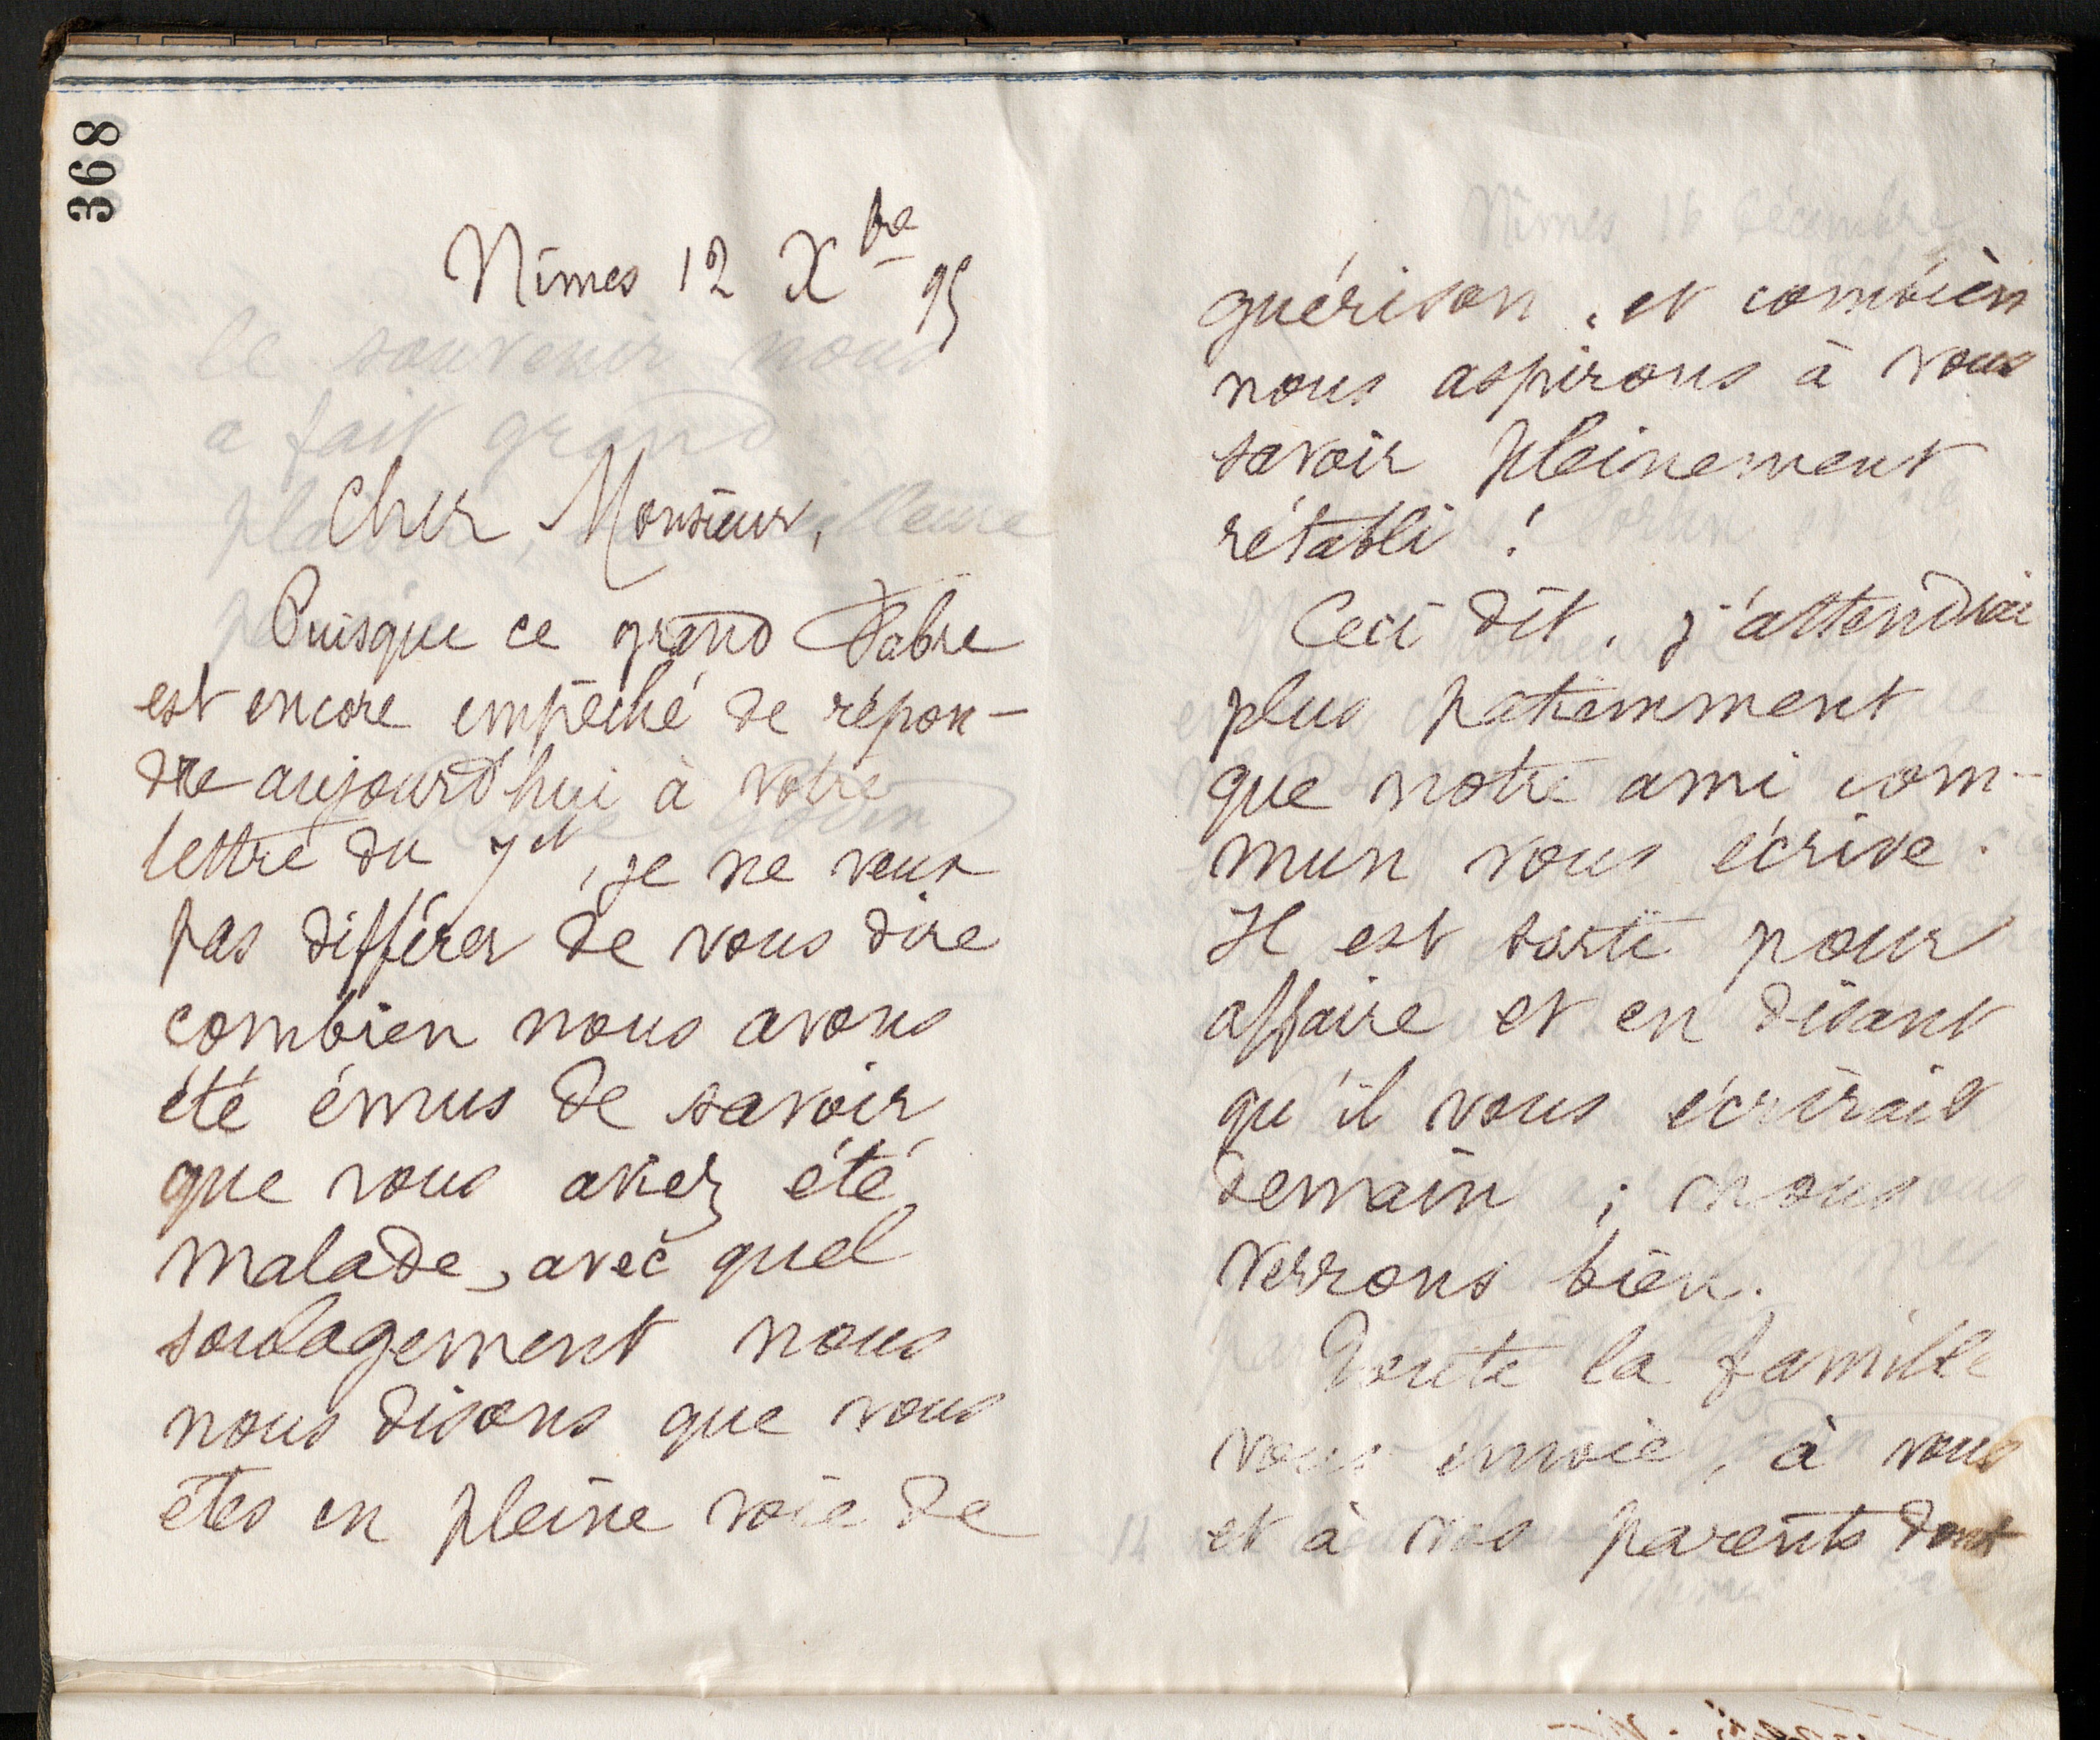 368
Nîmes 12 Xbre 95
Cher Monsieur,
Puisque ce grand Fabre
est encore empêché de répon-
dre aujourd'hui à votre
lettre du 7 ct, je ne veux
pas différer de vous dire
combien nous avons
été émus de savoir
que vous aviez été
malade, avec quel
soulagement nous
nous disons que vous
êtes en pleine voie de
guérison, et combien
nous aspirons à vous
savoir pleinement
rétabli !
Ceci dit, j'attendrai
plus patiemment
que notre ami com-
mun vous écrive.
Il est sorti pour
affaire et en disant
qu'il vous écrirait
demain ; nous
verrons bien.
Toute la famille
vous envoie, à vous
et à vos parents dont
14